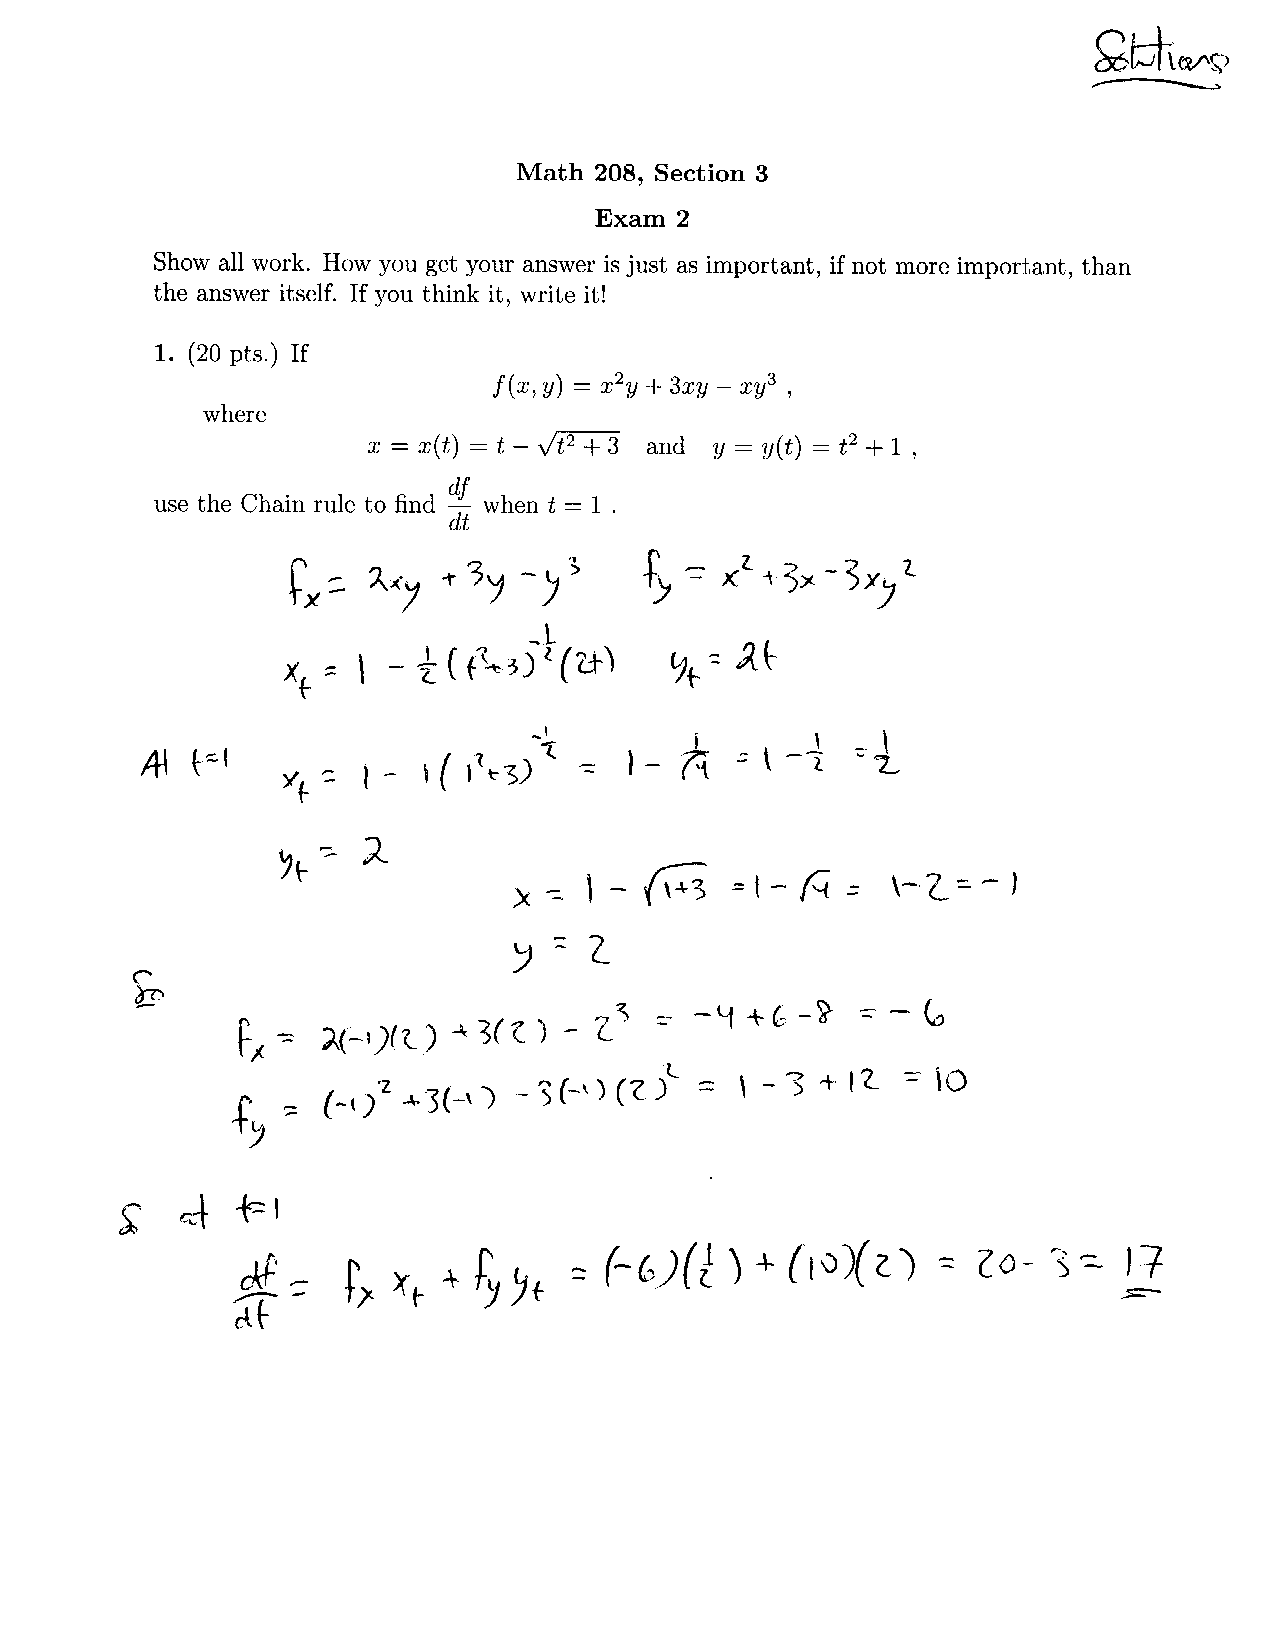 Solutions
Math 208, Section 3
Exam 2
Show all work. How you get your answer is just as important, if not more important, than
the answer itself. If you think it, write it!
1. (20 pts.) If
f(x, y) = x²y + 3xy − xy³ ,
where
x = x(t) = t − √(t² + 3) and y = y(t) = t² + 1 ,
use the Chain rule to find df/dt when t = 1 .
f_x = 2xy + 3y − y³ f_y = x² + 3x − 3xy²
x_t = 1 − ½(t²+3)^(-½)(2t) y_t = 2t
At t=1 x_t = 1 − 1(1²+3)^(-½) = 1 − 1/√4 = 1 − ½ = ½
y_t = 2
x = 1 − √(1+3) = 1 − √4 = 1−2 = −1
y = 2
So
f_x = 2(−1)(2) + 3(2) − 2³ = −4 + 6 − 8 = −6
f_y = (−1)² + 3(−1) − 3(−1)(2)² = 1 − 3 + 12 = 10
So at t=1
df/dt = f_x x_t + f_y y_t = (−6)(½) + (10)(2) = 20 − 3 = 17